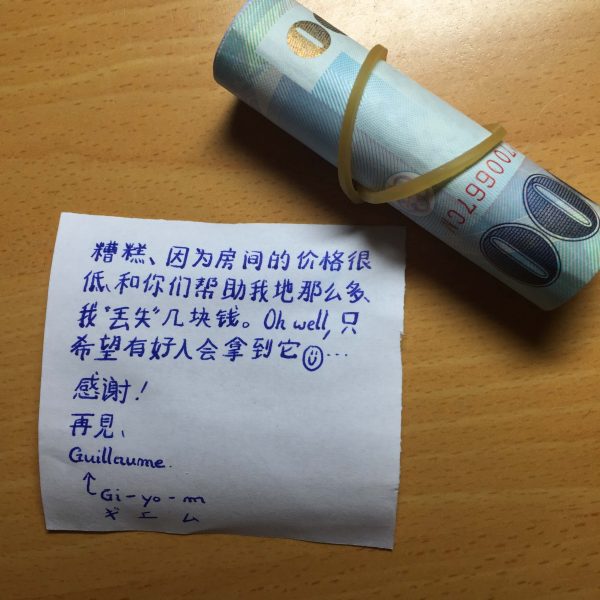 00
Z00667C
00
糟糕、因为房间的价格很
低、和你们帮助我地那么多、
我"丢失"几块钱。Oh well, 只
希望有好人会拿到它☺...
感谢！
再見、
Guillaume.
↑Gi-yo-m
ギエム